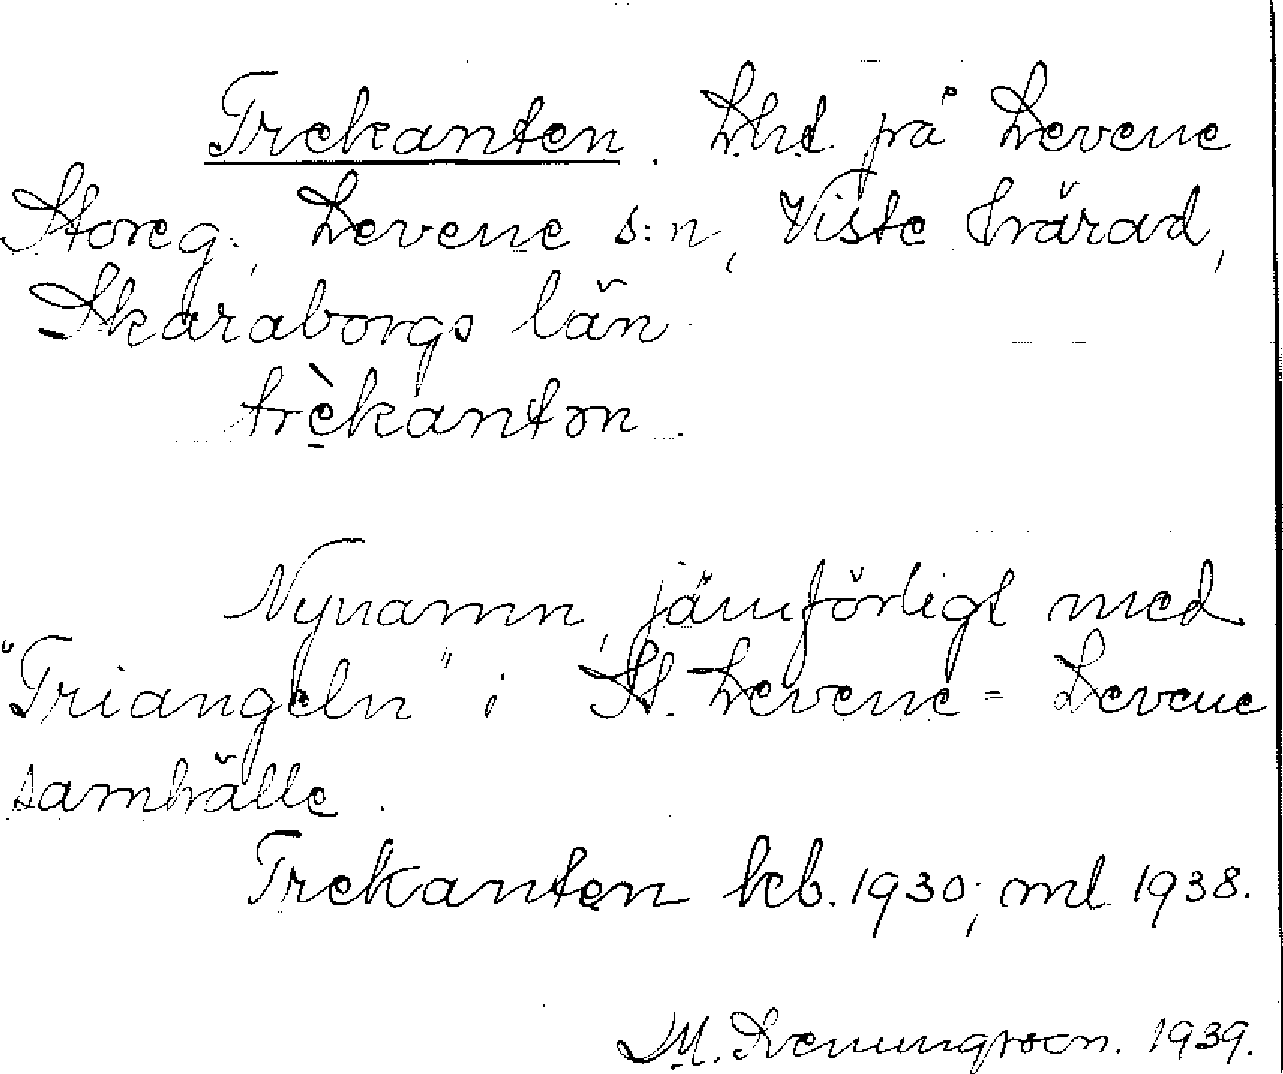 Trekanten. Lht. på Levene
Storeg., Levene s:n, Viste härad,
Skaraborgs län.
trèkantən.
Nynamn, jämförligt med
"Triangeln" i St. Levene = Levene
samhälle.
Trekanten kb. 1930; ml 1938.
M. 1939.